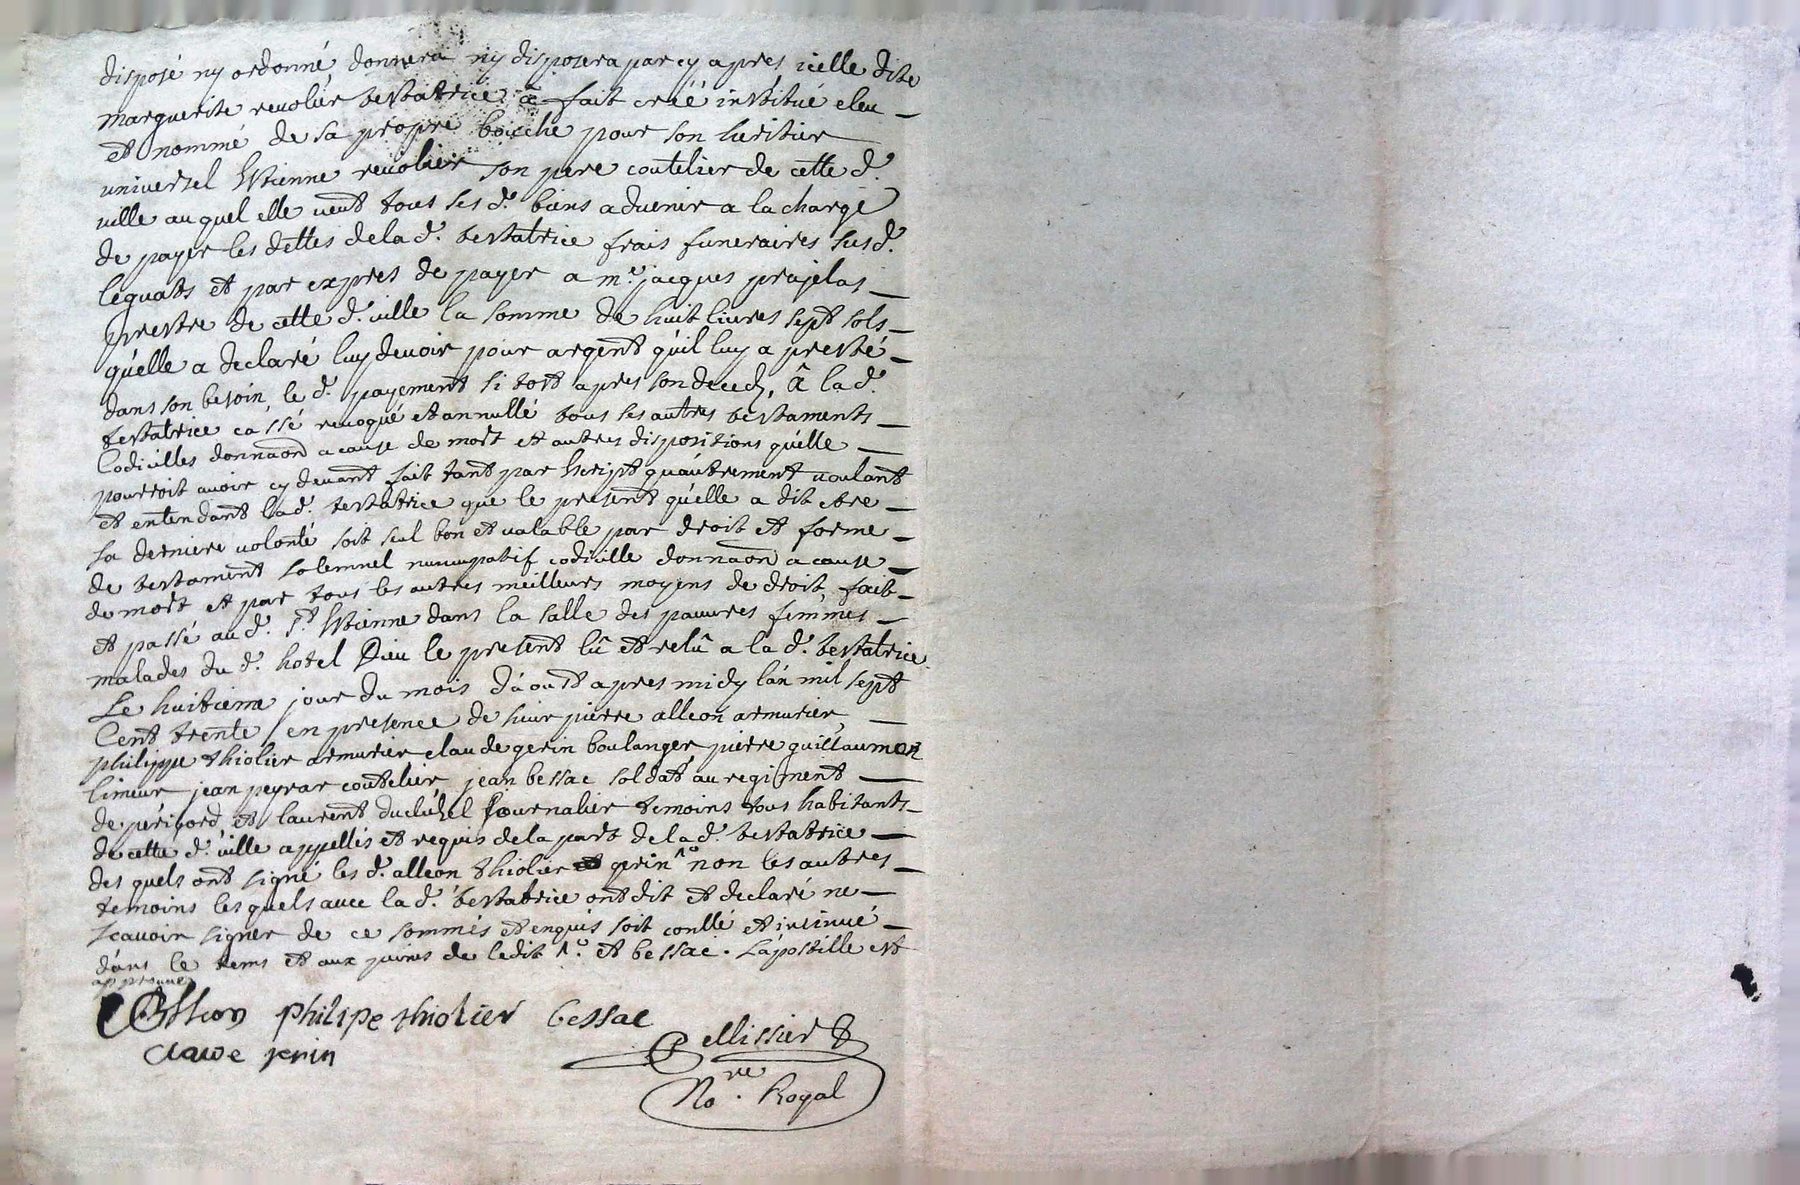 disposé ny ordonné donnera ny disposera par cy apres icelle dite
marguerite reuolier testatrice â fait créé institué eleu
et nommé de sa propre bouche pour son heritier
universel Estienne reuolier son pere coutelier de cette d.
ville auquel elle ueut tous ses d. biens aduenir a la charge
de payer les dettes de la d. testatrice frais funeraires susd.
leguats et par expres de payer a m.e jacques prajelas
prestre de cette d. ville la somme de huit liures sept sols
qu'elle a declaré luy deuoir pour argent qu'il luy a presté
dans son besoin le d. payement si tost apres son deced, â la d.
testatrice cassé reuoqué et annullé tous ses autres testaments
Codicilles donnaon a cause de mort et autres dispositions qu'elle
pourroit auoir cy deuant fait tant par Escript qu'autrement uoulant
et entendant la d. testatrice que le present qu'elle a dit etre
sa derniere uolonté soit seul bon et ualable par droit et forme
de testament solemnel nuncupatif codicille donnaon a cause
de mort et par tous les autres meilleurs moyens de droit, fait
et passé au d. S.t Estienne dans la salle des pauures femmes
malades du d. hotel Dieu le present lû et relû a la d. testatrice
Le huitieme jour du mois d'aoust apres midy l'an mil sept
Cent trente en presence de sieur pierre alleon armurier
philippe thiolier armurier claude gerin boulanger pierre guillaumon
limeur jean peyrar coutelier jean bessac soldat au regiment
de perigord et laurent Journalier temoins tous habitants
de cette d. uille appellés et requis de la part de la d. testatrice
des quels ont signé les d. alleon thiolier et gerin non les autres
temoins les quels auec la d. testatrice ont dit et declaré ne
scauoir signer de ce sommés et enquis soit conllé et incinué
dans le tems et aux peines de ledit 1.o et bessac. L'apostille est
approuuée
Alleon philipe thiolier bessac
clawde jerin
Pellissier
No.re Royal